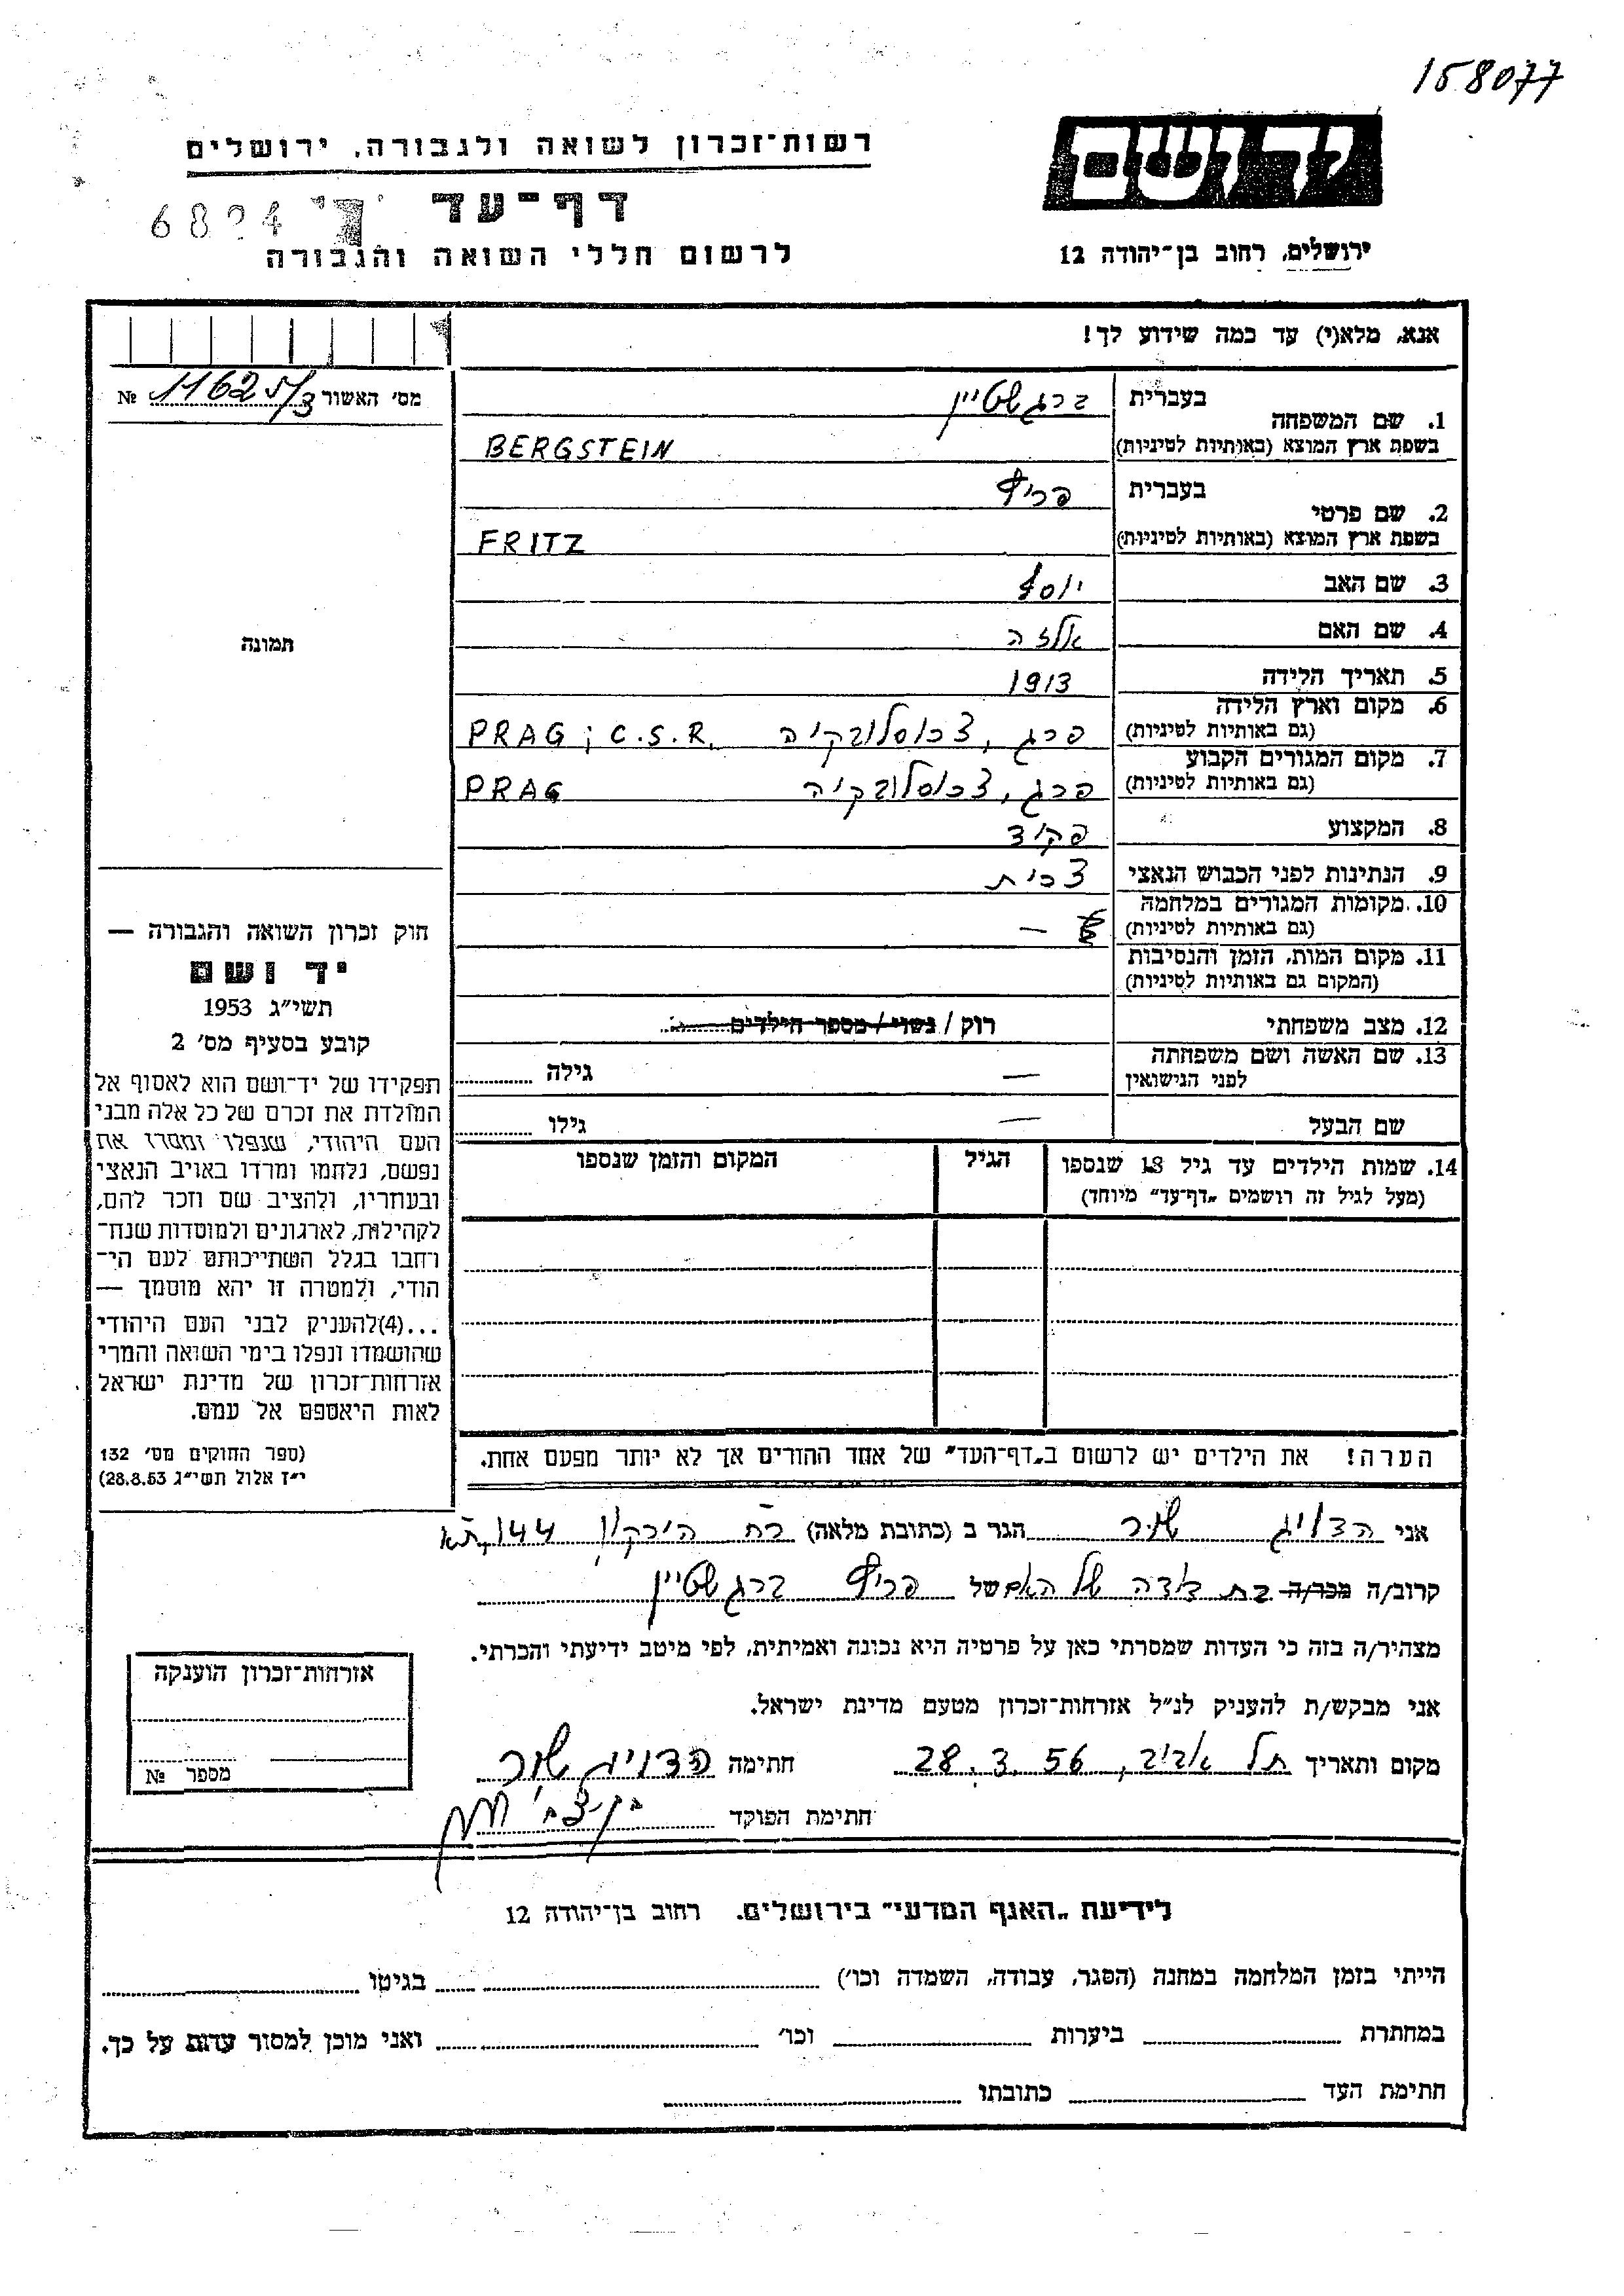 158077
רשות־זכרון לשואה ולגבורה, ירושלים
יד ושם
דף־עד
6824
לרשום חללי השואה והגבורה
ירושלים, רחוב בן־יהודה 12
אנא, מלא(י) עד כמה שידוע לך!
מס׳ האשור 11625/3 №
1. שם המשפחה
בעברית ברגשטיין
בשפת ארץ המוצא (באותיות לטיניות) BERGSTEIN
2. שם פרטי
בעברית פריץ
בשפת ארץ המוצא (באותיות לטיניות) FRITZ
3. שם האב יוסף
4. שם האם אלזה
5. תאריך הלידה 1913
6. מקום וארץ הלידה
(גם באותיות לטיניות) פרג, צכוסלובקיה PRAG; C.S.R.
7. מקום המגורים הקבוע
(גם באותיות לטיניות) פרג, צכוסלובקיה PRAG
8. המקצוע פקיד
9. הנתינות לפני הכבוש הנאצי צכית
10. מקומות המגורים במלחמה
(גם באותיות לטיניות) —
11. מקום המות, הזמן והנסיבות
(המקום גם באותיות לטיניות)
12. מצב משפחתי רוק / נשוי / מספר הילדים
13. שם האשה ושם משפחתה
לפני הנישואין — גילה
שם הבעל — גילו
14. שמות הילדים עד גיל 18 שנספו
(מעל לגיל זה רושמים „דף־עד״ מיוחד)
הגיל
המקום והזמן שנספו
הערה! את הילדים יש לרשום ב„דף־העד״ של אחד ההורים אך לא יותר מפעם אחת.
תמונה
חוק זכרון השואה והגבורה —
יד ושם
תשי״ג 1953
קובע בסעיף מס׳ 2
תפקידו של יד־ושם הוא לאסוף אל
המולדת את זכרם של כל אלה מבני
העם היהודי, שנפלו ומסרו את
נפשם, נלחמו ומרדו באויב הנאצי
ובעוזריו, ולהציב שם וזכר להם,
לקהילות, לארגונים ולמוסדות שנח־
רחבו בגלל השתייכותם לעם הי־
הודי, ולמטרה זו יהא מוסמך —
...(4)להעניק לבני העם היהודי
שהושמדו ונפלו בימי השואה והמרי
אזרחות־זכרון של מדינת ישראל
לאות היאספם אל עמם.
(ספר החוקים מס׳ 132
י״ז אלול תשי״ג 28.8.53)
אני הדויג שור הגר ב (כתובת מלאה) רח הירקון 144, ת״א
קרוב/ה מכר/ה בת דודה של האם של פריץ ברגשטיין
מצהיר/ה בזה כי העדות שמסרתי כאן על פרטיה היא נכונה ואמיתית, לפי מיטב ידיעתי והכרתי.
אני מבקש/ת להעניק לנ״ל אזרחות־זכרון מטעם מדינת ישראל.
מקום ותאריך תל אביב, 28.3.56 חתימה הדויג שור
חתימת הפוקד
אזרחות־זכרון הוענקה
מספר №
לידיעת „האגף המדעי״ בירושלים. רחוב בן־יהודה 12
הייתי בזמן המלחמה במחנה (הסגר, עבודה, השמדה וכו׳) בגיטו
במחתרת ביערות וכו׳ ואני מוכן למסור עדות על כך.
חתימת העד כתובתו